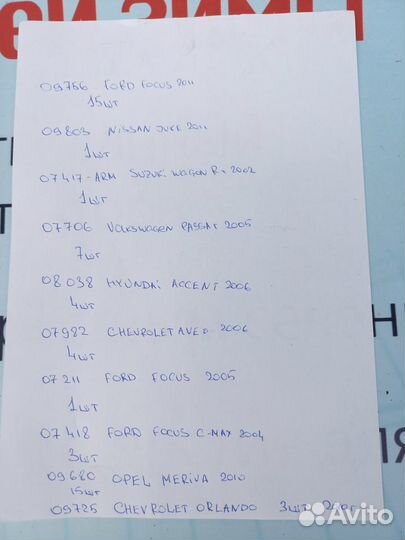 ей зимы
09756 FORD FOCUS 2011
15шт
09803 NISSAN JUKE 2011
1шт
07417-ARM SUZUKi WAGON R+ 2002
1шт
07706 VOLKSWAGEN PASSAt 2005
7шт
08038 HYUNDAi ACCENT 2006
4шт
07982 CHEVROLET AVEO 2006
4шт
07211 FORD FOCUS 2005
1шт
07418 FORD FOCUS C-MAX 2004
3шт
09680 OPEL MERiVA 2010
15шт
09725 CHEVROLET ORLANDO 3шт
Avito